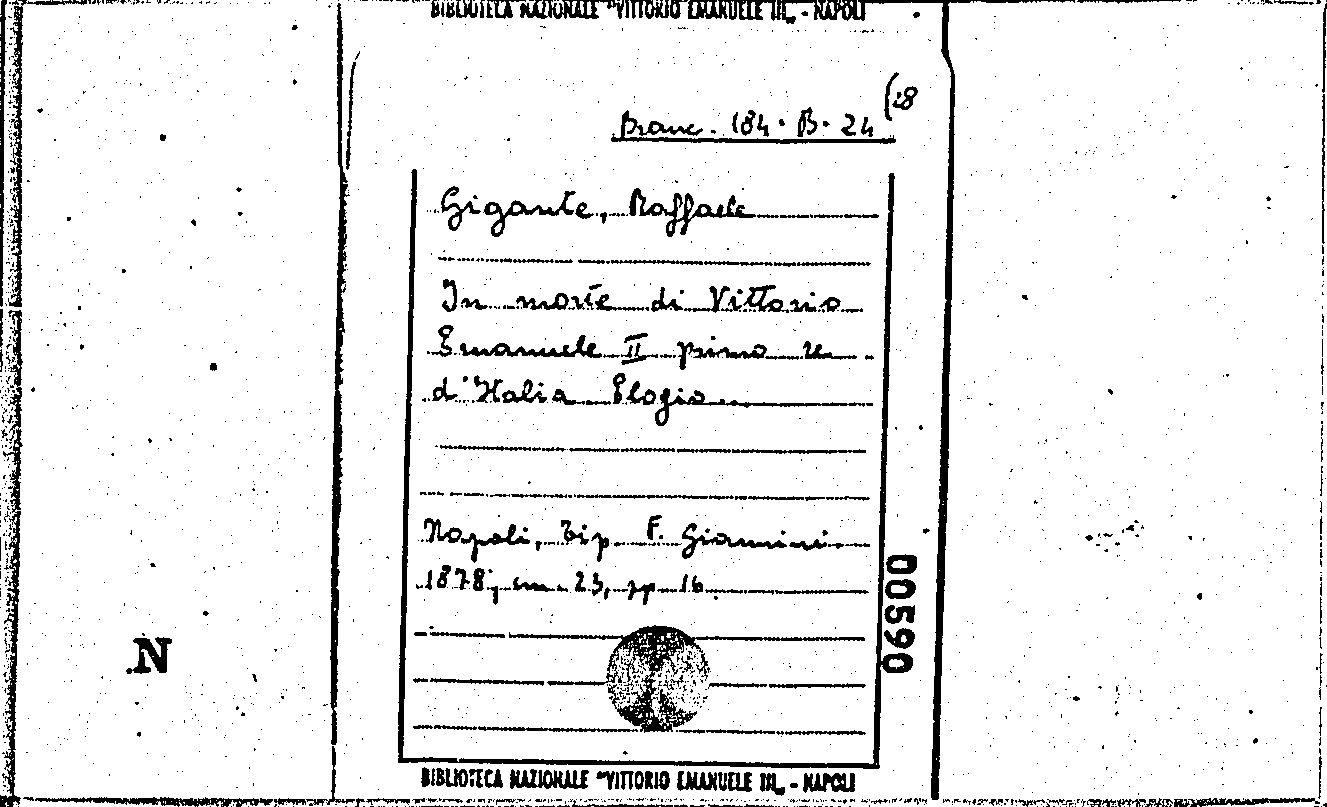 BIBLIOTECA NAZIONALE "VITTORIO EMANUELE III„ - NAPOLI
Branc. 184. B. 24 (18
Gigante, Raffaele
In morte di Vittorio
Emanuele II primo re
d'Italia Elogio...
Napoli, Tip. F. Giannini.
1878, cm. 23, pp 16.
00590
N
BIBLIOTECA NAZIONALE "VITTORIO EMANUELE III„ - NAPOLI